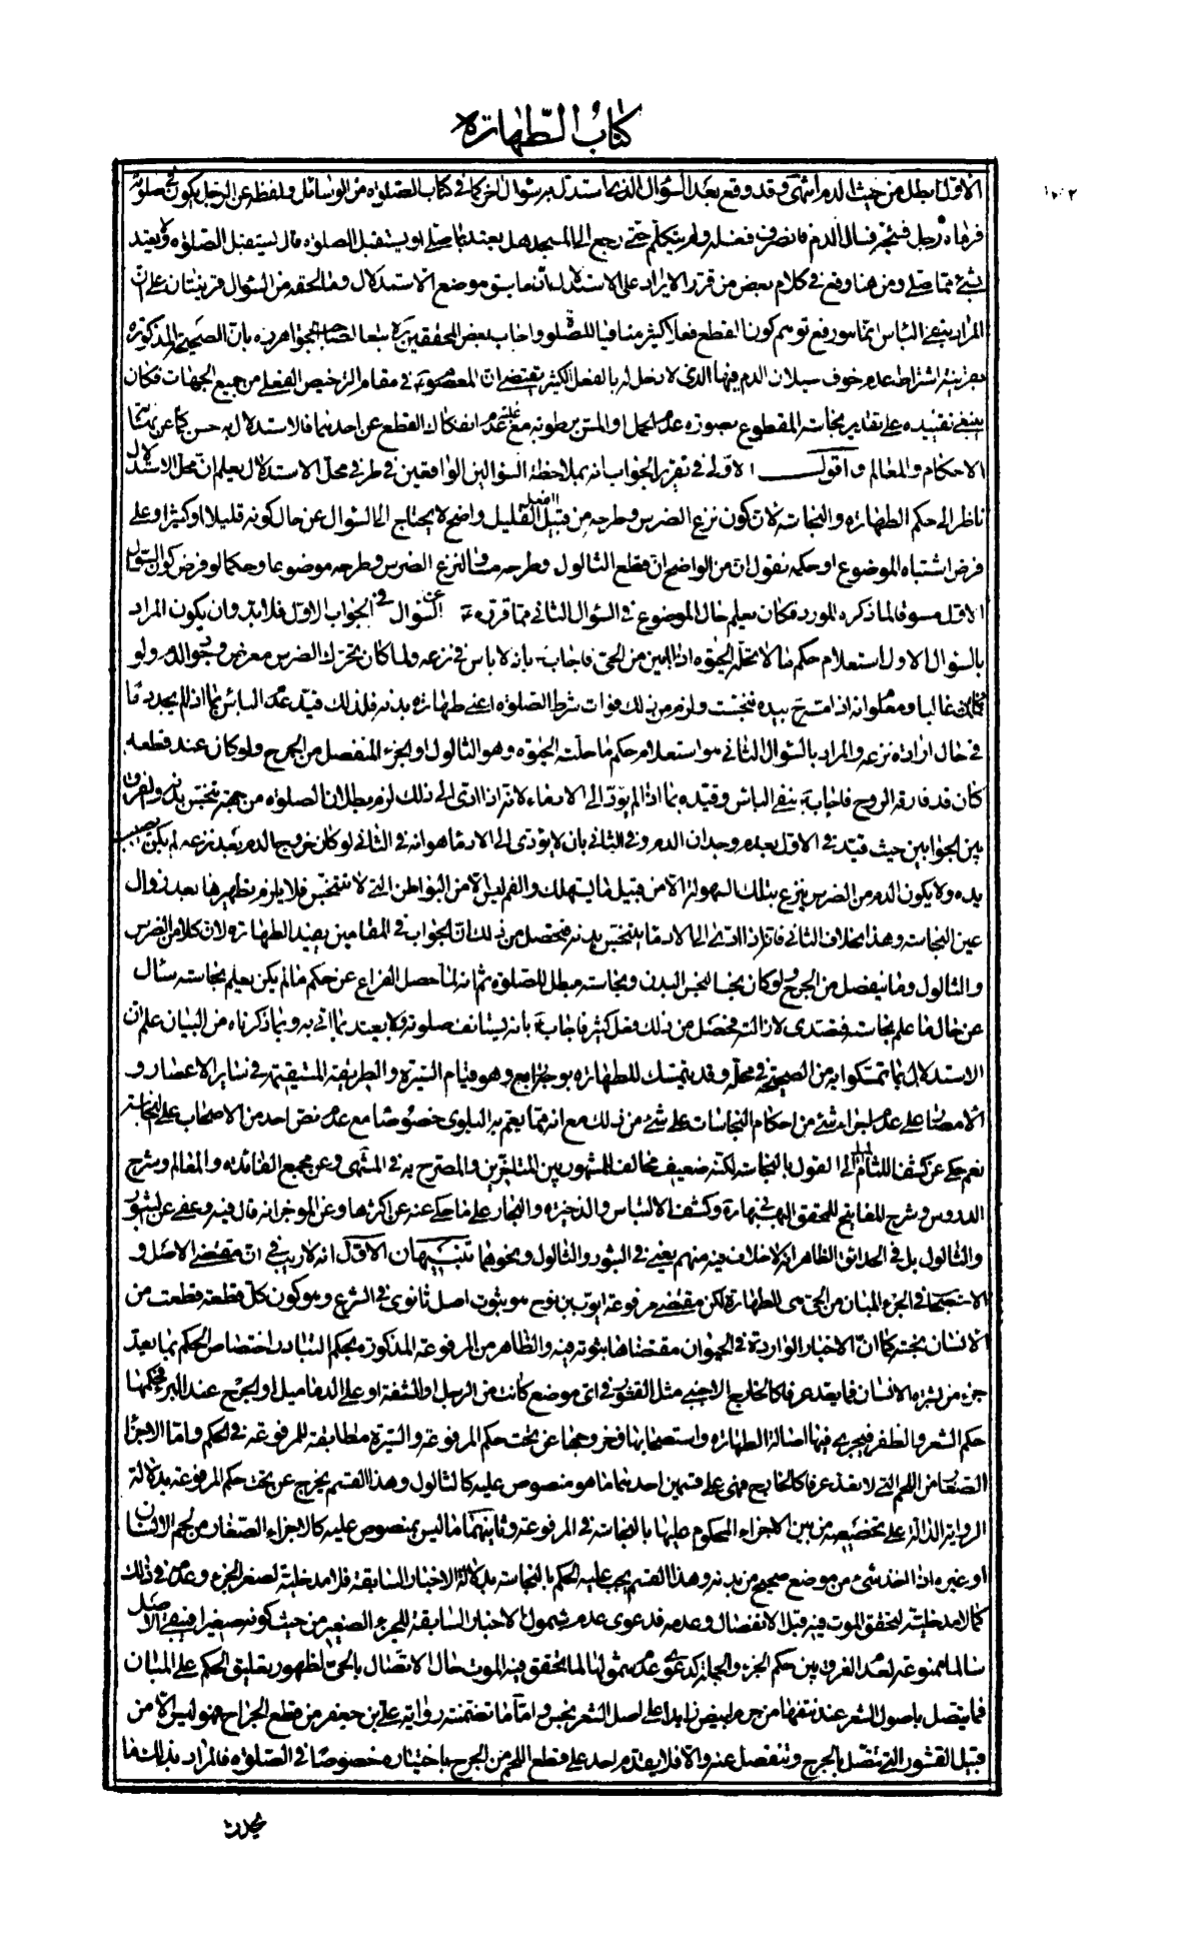 كتاب الطهارة
الاول يبطل من حيث الدم انتهى وقد وقع بعد السؤال الذى استدل به سؤال اخر كما فى كتاب الصلوة من الوسائل ولفظه عن الرجل يكون فى صلوته
فرماه رجل فشجه فسال الدم فانصرف فغسله ولم يتكلم حتى رجع الى المسجد هل يعتد بما صلى او يستقبل الصلوة قال يستقبل الصلوة ولا يعتد
بشئ مما صلى ومن هنا وقع فى كلام بعض من قرر الايراد على الاستدلال ان ما سبق موضع الاستدلال وما لحقه من السؤال قرينتان على ان
المراد بنفى الباس انما هو رفع توهم كون القطع فعلا كثيرا منافيا للصلوة واجاب بعض المحققين تبعا لصاحب الجواهر ره بان الصحيحة المذكورة
بقرينة اشتراط عدم خوف سيلان الدم فيها الذى لا دخل له بالفعل الكثير يقتضى ان المعصوم ع فى مقام الترخيص الفعلى من جميع الجهات فكان
ينبغى تقييده على تقدير نجاسة المقطوع بصورة عدم الحمل او المس برطوبة مع غلبة عدم انفكاك القطع عن احدهما فالاستدلال به حسن كما عن نهاية
الاحكام والمعالم واقول الاولى فى تقرير الجواب انه بملاحظة السؤالين الواقعين فى طرفى محل الاستدلال يعلم ان محل الاستدلال
ناظر الى حكم الطهارة والنجاسة لان كون نزع الضرس وطرحه من قبيل الفعل القليل واضح لا يحتاج الى السؤال عن حال كونه قليلا او كثيرا وعلى
فرض اشتباه الموضوع او حكمه نقول ان من الواضح ان قطع الثالول وطرحه مساو لنزع الضرس وطرحه موضوعا وحكما لو فرض كون السؤال
الاول مسوقا لما ذكره المورد فكان يعلم حال الموضوع فى السؤال الثانى مما قرره ع عن السؤال فى الجواب الاول فلا بد وان يكون المراد
بالسؤال الاول استعلام حكم ما لا تحله الحيوة اذا ابين من الحى فاجاب بانه لا باس فى نزعه ولما كان تحرك الضرس معرض خروج الدم ولو
كان غالبا ومعلوم انه اذا مسح بيده تنجست ولزم من ذلك فوات شرط الصلوة اعنى طهارة بدنه فلذلك قيد عدم الباس بما اذا لم يجد دما
فى حال ارادة نزعه والمراد بالسؤال الثانى هو استعلام حكم ما حلته الحيوة وهو الثالول او الجزء المنفصل من الجرح ولو كان عند قطعه
كان قد فارقه الروح فاجاب ع بنفى الباس وقيده بما اذا لم يؤد الى الادماء لانه اذا ادى الى ذلك لزم بطلان الصلوة من جهة تنجس بدنه والفرق
بين الجوابين حيث قيد فى الاول بعدم وجدان الدم وفى الثانى بان لا يؤدى الى الادماء هو انه فى الثانى لو كان خروج الدم بعد نزعه لم يكن
بيده ولا يكون الدم من الضرس ينزع بتلك السهولة الا من قبيل ما يستهلك والفم ليس الا من البواطن التى لا تتنجس فلا يلزم تطهيرها بعد زوال
عين النجاسة وهذا بخلاف الثانى فانه اذا ادى الى الادماء يتنجس بدنه فيحصل من ذلك ان الجواب فى المقامين يفيد الطهارة لان كلا من الضرس
والثالول وما ينفصل من الجرح لو كان نجسا لنجس البدن ونجاسته مبطل للصلوة ثم انه لما حصل الفراغ عن حكم ما لم يكن يعلم نجاسته سئال
عن حال ما علم نجاسته فتصدى لازالته فحصل من ذلك فعل كثير فاجاب ع بانه يستانف صلوته ولا يعتد بما اتى به وبما ذكرناه من البيان علم ان
الاستدلال بما تمسكوا به من الصحيحة فى محله وقد يتمسك للطهارة بوجه رابع وهو قيام السيرة والطريقة المستقيمة فى ساير الاعصار و
الامصار على عدم اجراء شئ من احكام النجاسات على شئ من ذلك مع انه مما يعم به البلوى خصوصا مع عدم نص احد من الاصحاب على النجاسة
نعم حكى عن كشف اللثام الميل الى القول بالنجاسة لكنه ضعيف مخالف للمشهور بين المتاخرين والمصرح به فى المنتهى وعن مجمع الفائدة والمعالم وشرح
الدروس وشرح المفاتيح للمحقق البهبهانى وكشف الالتباس والذخيرة والبحار على ما حكى عنه عن اكثرها وعن الموجز انه قال فيه وعفى عن البثور
والثالول بل فى الحدائق الظاهر انه لا خلاف فيه منهم يعنى فى البثور والثالول ونحوهما تنبيهان الاول انه لا ريب فى ان مقتضى الاصل و
الاستصحاب فى الجزء المبان من الحى هى الطهارة لكن مقتضى مرفوعة ايوب بن نوح هو ثبوت اصل ثانوى فى الشرع وهو كون كل قطعة قطعت من
الانسان نجسة كما ان الاخبار الواردة فى الحيوان مقتضاها ثبوته فيه والظاهر من المرفوعة المذكورة بحكم التبادر اختصاص الحكم بما يعد
جزء من بشرة الانسان فما يعد عرفا كالخارج الاجنبى مثل القشور فى اى موضع كانت من الرجل او الشفة او على الدماميل او الجرح عند البرء فحكمها
حكم الشعر والظفر فيجرى فيها اصالة الطهارة واستصحابها فخروجها عن تحت حكم المرفوعة والسيرة مطابقة للمرفوعة فى الحكم واما الاجزاء
الصغار من اللحم التى لا تعد عرفا كالخارج فهى على قسمين احدهما ما هو منصوص عليه كالثالول وهذا القسم يخرج عن تحت حكم المرفوعة بدلالة
الرواية الدالة على تخصيصه من بين الاجزاء المحكوم عليها بالنجاسة فى المرفوعة وثانيهما ما ليس بمنصوص عليه كالاجزاء الصغار من لحم الانسان
او غيره اذا اخذ شئ من موضع صحيح من بدنه وهذا القسم يجب عليه الحكم بالنجاسة بدلالة الاخبار السابقة فلا مدخلية لصغر الجزء وعدمه فى ذلك
كما لا مدخلية لتحقق الموت فيه قبل الانفصال وعدمه فدعوى عدم شمول الاخبار السابقة للجزء الصغير من حيث كونه صغيرا فينبغى الاصل
سالما ممنوعة لعدم الفرق بين حكم الجزء والجملة كدعوى عدم شمولها لما تحقق فيه الموت حال الاتصال بالحى لظهور تعليق الحكم على المبان
فما يتصل باصول الشعر عند نتفها من جرم ابيض زايدا على اصل الشعر نجس واما ما تضمنته رواية على بن جعفر من قطع الجراح فهو ليس الا من
قبيل القشور التى تتصل بالجرح وتنفصل عنه والا فلا يقدم احد على قطع اللحم من الجرح باختياره خصوصا فى الصلوة فالمراد بذلك ما